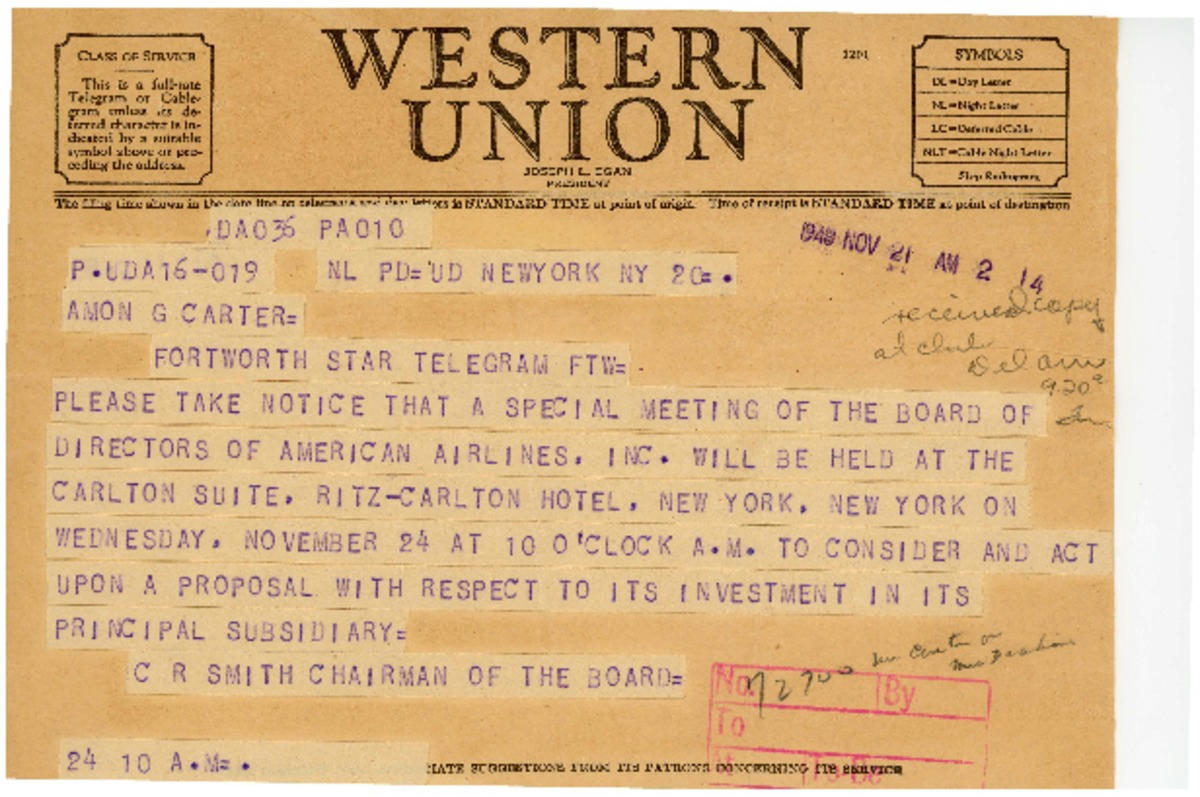 CLASS OF SERVICE
This is a full-rate
Telegram or Cable-
gram unless its de-
ferred character is in-
dicated by a suitable
symbol above or pre-
ceding the address.
WESTERN
UNION
1201
JOSEPH L. EGAN
PRESIDENT
SYMBOLS
DL=Day Letter
NL=Night Letter
LC=Deferred Cable
NLT=Cable Night Letter
Ship Radiogram
The filing time shown in the date line on telegrams and day letters is STANDARD TIME at point of origin. Time of receipt is STANDARD TIME at point of destination
DA036 PA010
1948 NOV 21 AM 2 14
P.UDA16-019 NL PD=UD NEWYORK NY 20=.
AMON G CARTER=
received copy
at club
Del
9.20
FORTWORTH STAR TELEGRAM FTW=
PLEASE TAKE NOTICE THAT A SPECIAL MEETING OF THE BOARD OF
DIRECTORS OF AMERICAN AIRLINES, INC. WILL BE HELD AT THE
CARLTON SUITE, RITZ-CARLTON HOTEL, NEW YORK, NEW YORK ON
WEDNESDAY, NOVEMBER 24 AT 10 O'CLOCK A.M. TO CONSIDER AND ACT
UPON A PROPOSAL WITH RESPECT TO ITS INVESTMENT IN ITS
PRINCIPAL SUBSIDIARY=
C R SMITH CHAIRMAN OF THE BOARD=
No. By
To
To Be
24 10 A.M=.
SUGGESTIONS FROM ITS PATRONS CONCERNING ITS SERVICE